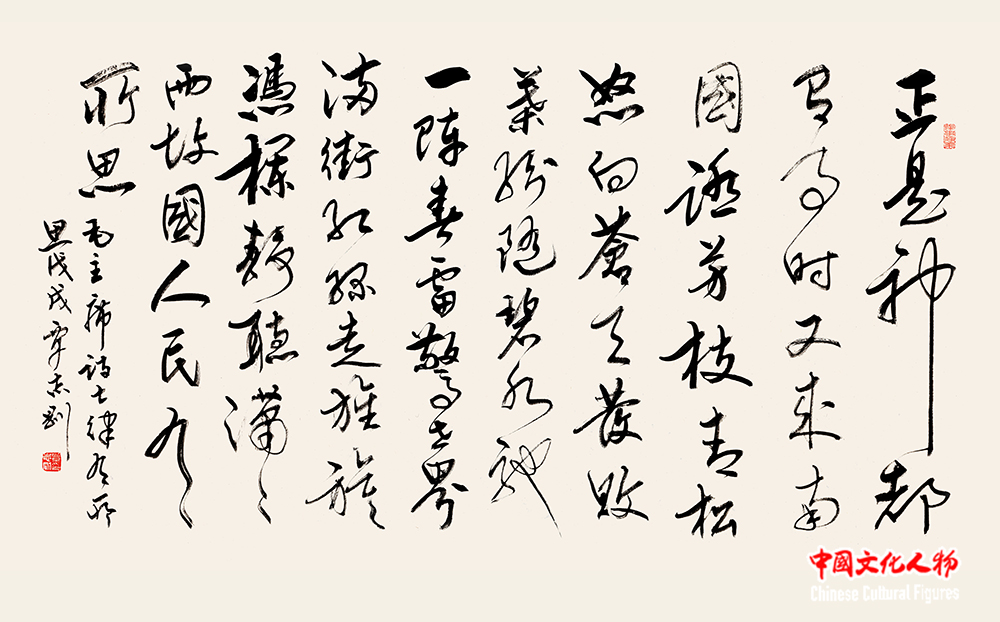 正是神都
有事时又来南
國踏芳枝青松
怒向蒼天發敗
葉紛随碧水驰
一陣春雷驚世界
满街红绿走旌旗
憑欄静聽瀟〻
雨故國人民有
所思
毛主席詩七律有所
思戊戌覃志刚
中國文化人物
Chinese Cultural Figures